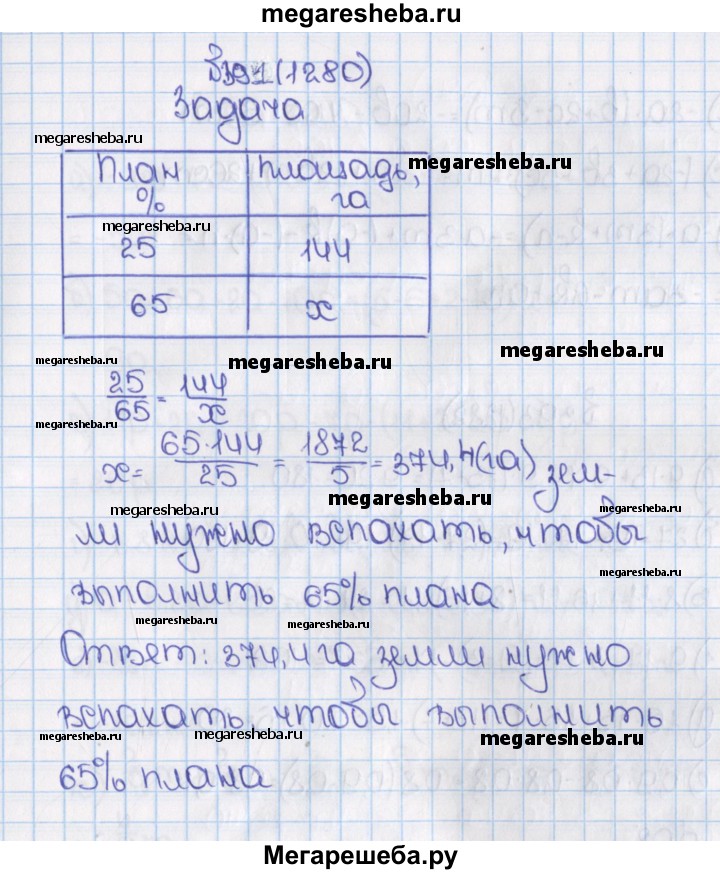 megaresheba.ru
391(1280)
Задача
megaresheba.ru
План %
Площадь, га
megaresheba.ru
megaresheba.ru
25
144
65
x
megaresheba.ru
megaresheba.ru
megaresheba.ru
25/65 = 144/x
megaresheba.ru
x = 65·144/25 = 1872/5 = 374,4 (га) зем-
megaresheba.ru
megaresheba.ru
ли нужно вспахать, чтобы
megaresheba.ru
выполнить 65% плана.
megaresheba.ru
Ответ: 374,4 га земли нужно
megaresheba.ru
вспахать, чтобы выполнить
megaresheba.ru
megaresheba.ru
megaresheba.ru
65% плана
Мегарешеба.ру